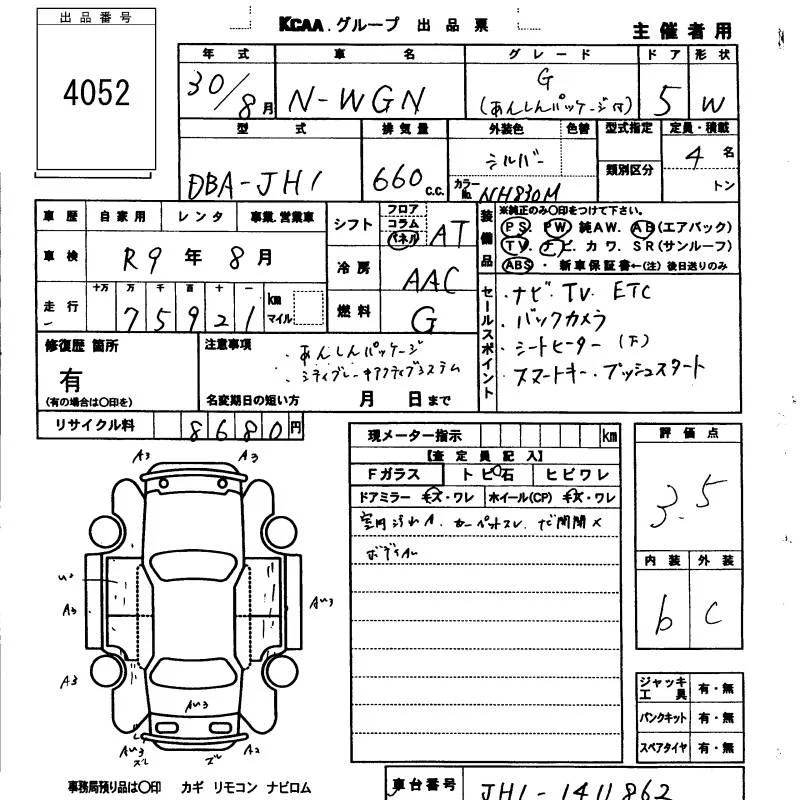 出品番号
4052
KCAA.グループ 出品票
主催者用
年式 車名 グレード ドア 形状
30/8月 N-WGN G (あんしんパッケージ付) 5 W
型式 排気量 外装色 色替 型式指定 定員・積載
DBA-JH1 660 c.c. シルバー カラーNo. NH830M 類別区分 4名 トン
車歴 自家用 レンタ 事業.営業車
車検 R9年8月
走行 十万 万 千 百 十 一 km マイル
75921
シフト フロア コラム パネル AT
冷房 AAC
燃料 G
装備品 ※純正のみ〇印をつけて下さい。
PS. PW 純AW. AB(エアバック)
TV. ナビ. カワ. SR(サンルーフ)
ABS ・ 新車保証書←(注)後日送りのみ
セールスポイント
・ナビ・TV ETC
・バックカメラ
・シートヒーター(下)
・スマートキー・プッシュスタート
修復歴 箇所
有
(有の場合は〇印を)
注意事項
・あんしんパッケージ
・シティブレーキアクティブシステム
名変期日の短い方 月 日まで
リサイクル料 8680円
現メーター指示 km
【査定員記入】
Fガラス トビ石 ヒビワレ
ドアミラー キズ・ワレ ホイール(CP) キズ・ワレ
室内汚れA. カーペットスレ. ナビ開閉×
評価点
3.5
内装 外装
b C
A3 A3
U2
A3 AU3
A3
AU3
AU3 ズレ ズレ A2
ジャッキ工具 有・無
パンクキット 有・無
スペアタイヤ 有・無
事務局預り品は〇印 カギ リモコン ナビロム
車台番号 JH1-1411862